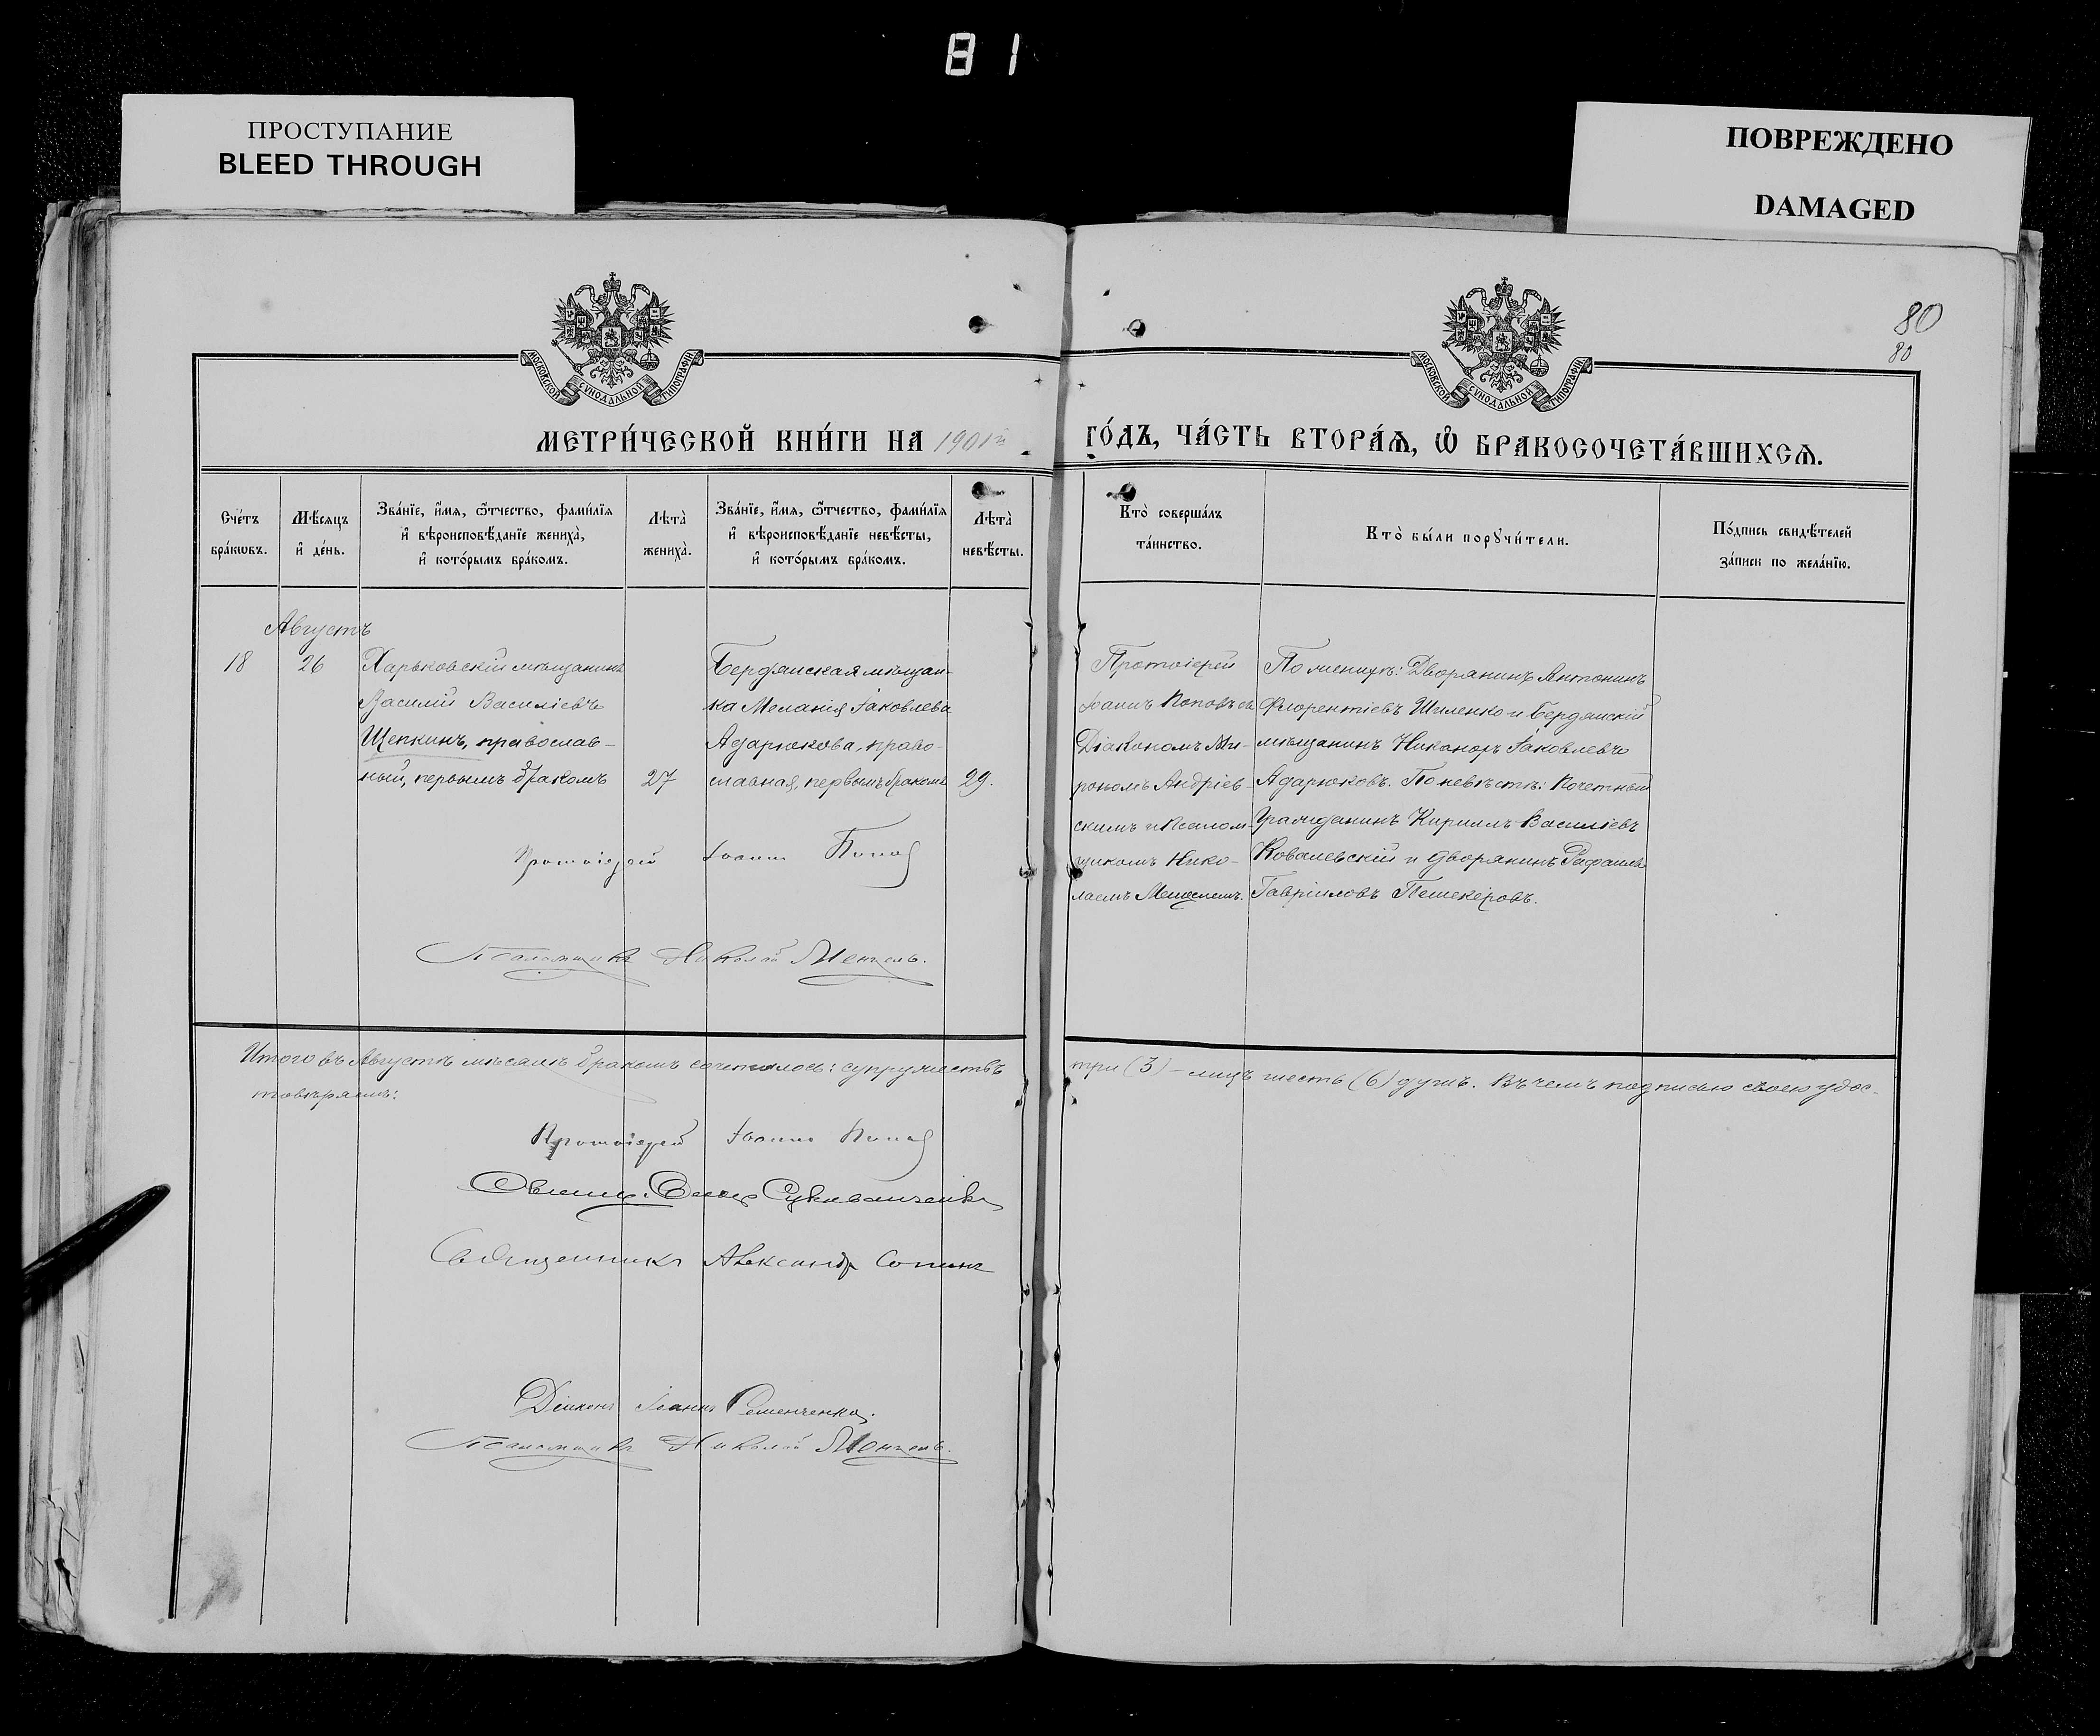 81
ПРОСТУПАНИЕ
BLEED THROUGH
ПОВРЕЖДЕНО
DAMAGED
МОСКОВСКОЙ СУНОДАЛЬНОЙ ТИПОГРАФІИ
МОСКОВСКОЙ СУНОДАЛЬНОЙ ТИПОГРАФІИ
80
80
МЕТРИ́ЧЕСКОЙ КНИ́ГИ НА 1901й ГО́ДЪ, ЧА́СТЬ ВТОРА́Ѧ, Ѡ҆ БРАКОСОЧЕТА́ВШИХСѦ.
Сче́тъ
бра́кѡвъ.
Мѣ́сѧцъ
и҆ де́нь.
Зва́нїе, и҆́мѧ, ѻ҆́тчество, фами́лїѧ
и҆ вѣроисповѣ́данїе жениха̀,
и҆ кото́рымъ бра́комъ.
Лѣта̀
жениха̀.
Зва́нїе, и҆́мѧ, ѻ҆́тчество, фами́лїѧ
и҆ вѣроисповѣ́данїе невѣ́сты,
и҆ кото́рымъ бра́комъ.
Лѣта̀
невѣ́сты.
Кто̀ соверша́лъ
та́инство.
Кто̀ бы́ли порꙋчи́тели.
По́дпись свидѣ́телей
за́писи по жела́нїю.
Августъ
18
26
Харьковскій мѣщанинъ
Василій Василіевъ
Щепкинъ, православ-
ный, первымъ бракомъ
27
Бердянская мѣщан-
ка Меланія Іаковлева
Адарюкова, право-
славная, первымъ бракомъ
29.
Протоіерей
Іоаннъ Поповъ съ
Діакономъ Ми-
рономъ Андріев-
скимъ и Псалом-
щикомъ Нико-
лаемъ Менцелемъ.
По женихѣ: Дворянинъ Антонинъ
Флорентіевъ Шиленко и Бердянскій
мѣщанинъ Никаноръ Іаковлевъ
Адарюковъ. По невѣстѣ: Почетный
Гражданинъ Кириллъ Василіевъ
Ковалевскій и дворянинъ Рафаилъ
Гавріиловъ Пешекѣровъ.
Протоіерей Іоаннъ Поповъ
Псаломщикъ Николай Менцель.
Итого въ Августѣ мѣсяцѣ бракомъ сочеталось: супружествъ три (3) – лицъ шесть (6) душъ. Въ чемъ подписью своею удос-
товѣряемъ:
Протоіерей Іоаннъ Поповъ
Священникъ Александръ Сопинъ
Діаконъ Іоаннъ Семенченко.
Псаломщикъ Николай Менцель.